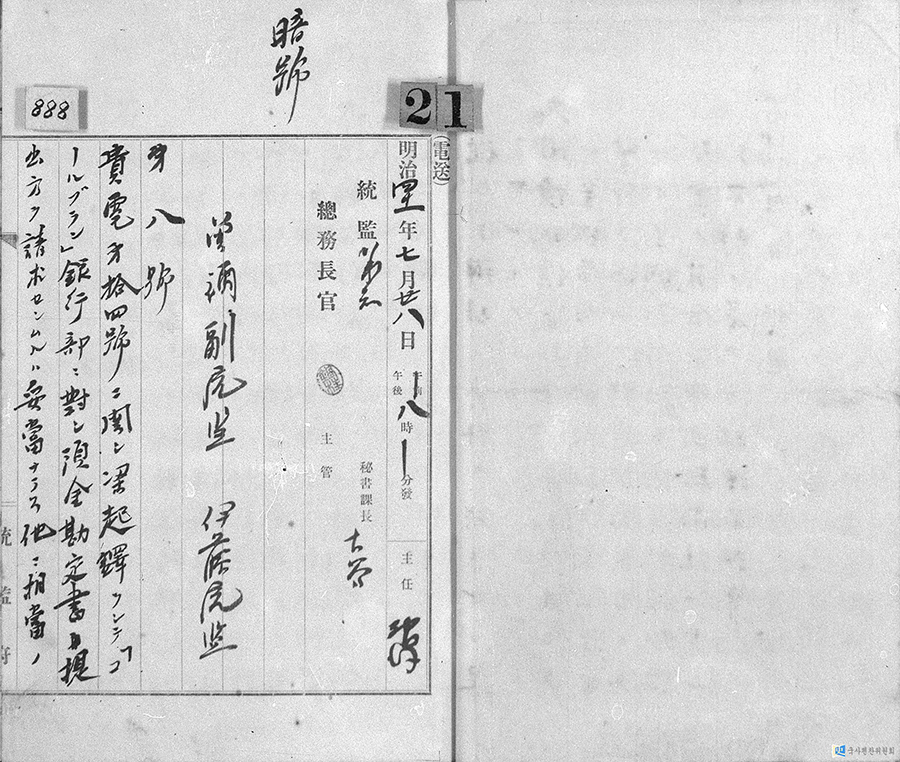 暗號
888
21
(電送)
明治四一年七月廿八日 午前 午後 八時 分發 主任
統監 秘書課長
總務長官 主管
曾禰副統監 伊藤統監
第八號
貴電第拾四號ニ關シ梁起鐸ヲシテ「コ
ールブラン」銀行部ニ對シ預金勘定書ヲ提
出方ヲ請求センムルハ妥當ナラス他ニ相當ノ
統監府
국사편찬위원회